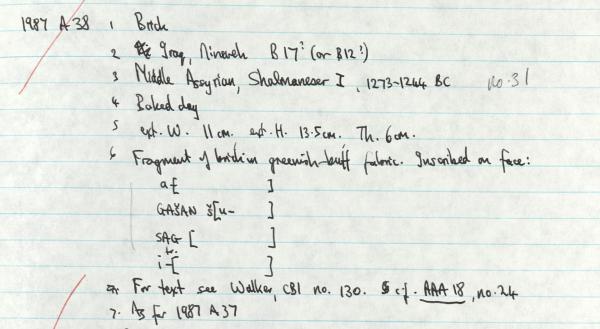 1987 A 38 1 Brick
2 Iraq, Nineveh B 17? (or B12?)
3 Middle Assyrian, Shalmaneser I, 1273-1244 BC no. 31
4 Baked clay
5 ext. W. 11 cm. ext. H. 13.5 cm. Th. 6 cm.
6 Fragment of brick in greenish-buff fabric. Inscribed on face:
a-[ ]
GAŠAN š[u- ]
SAG [ ]
i-[ ]
For text see Walker, CBI no. 130. cf. AAA 18, no. 24
7. As for 1987 A 37